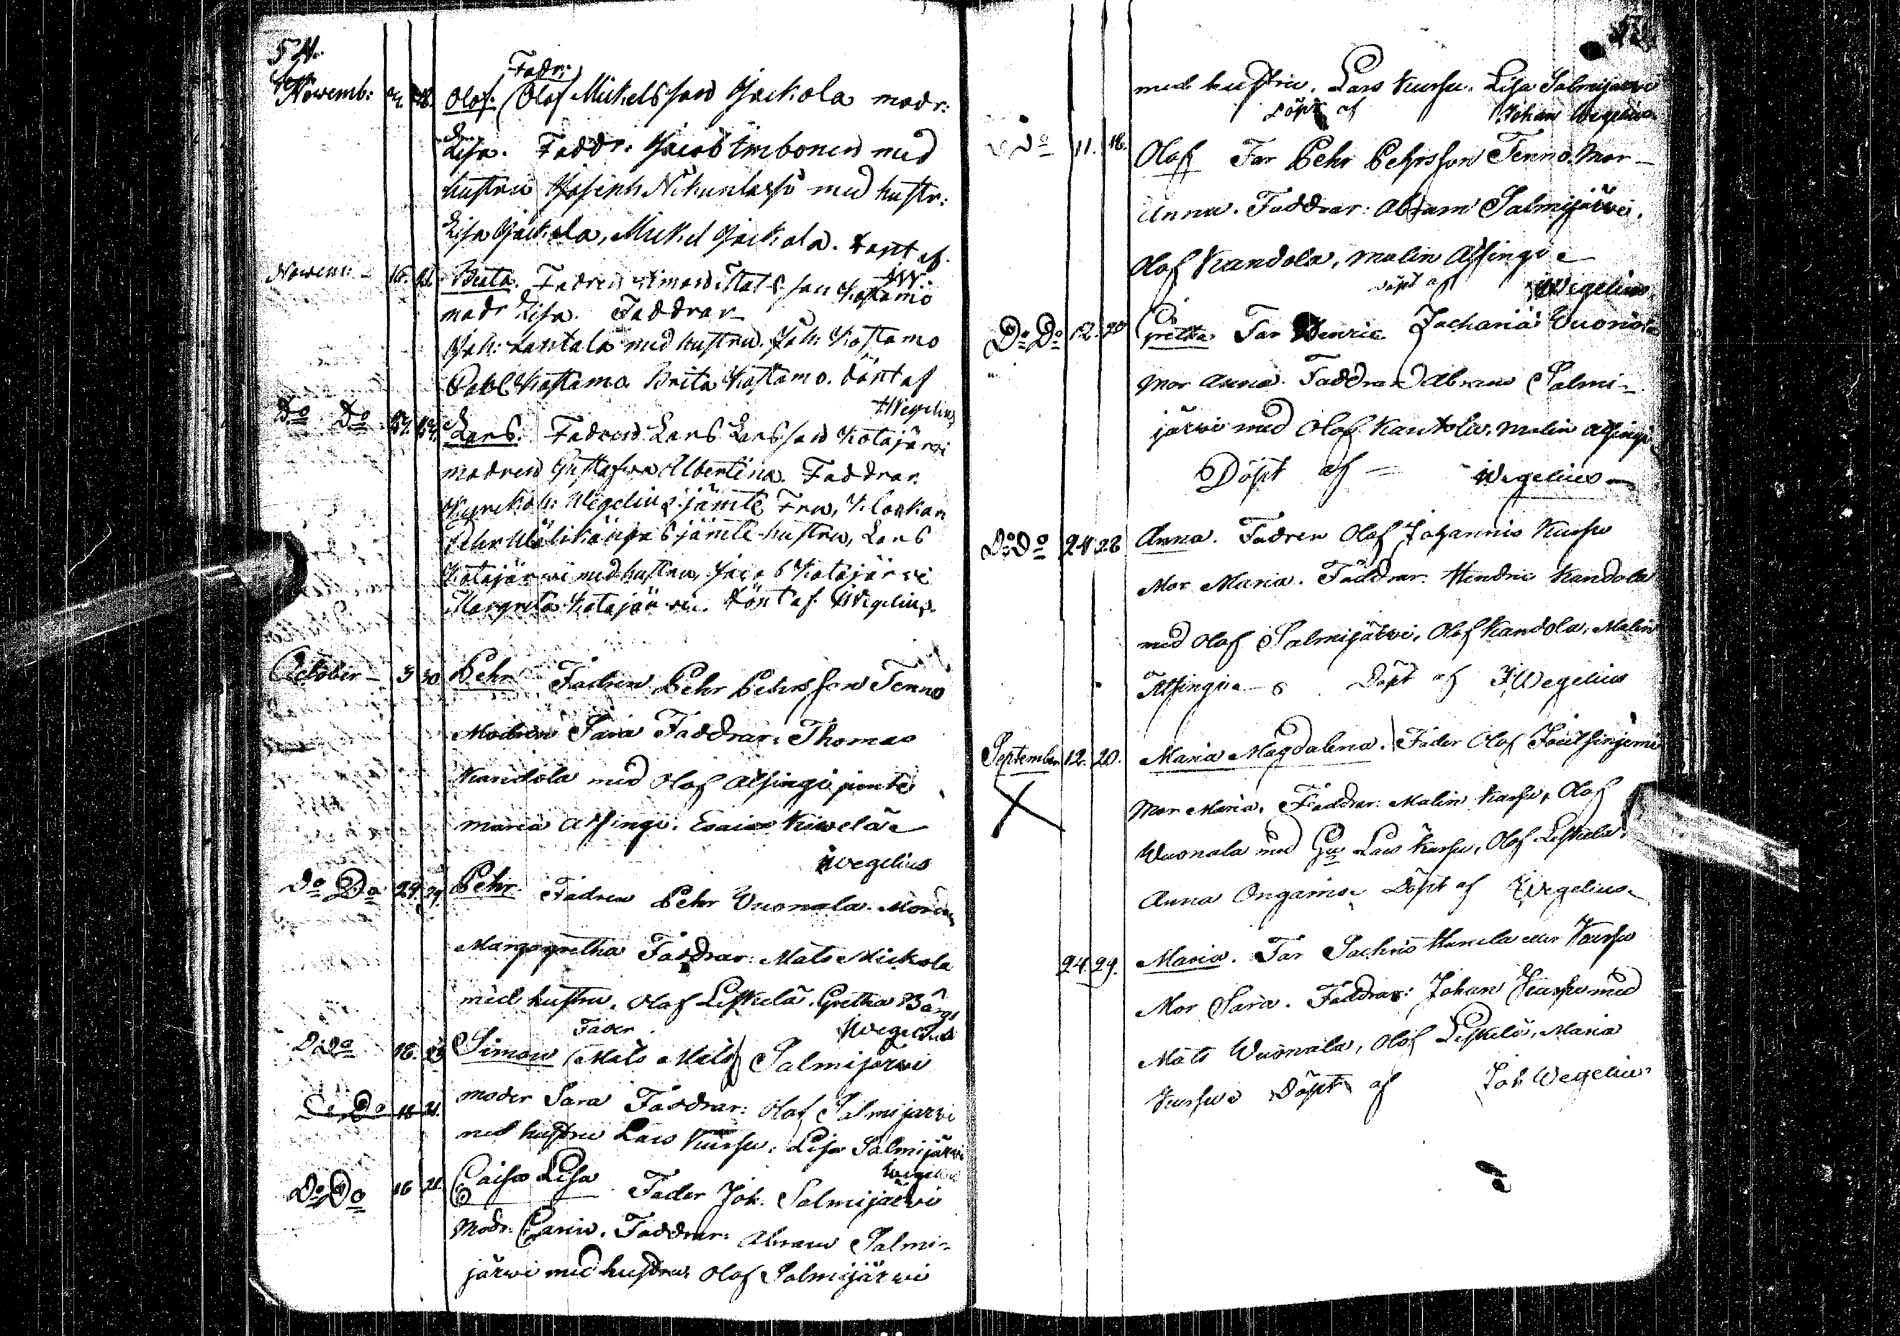 54.
Novemb: Olof. (Fadr: Olof Mickelsson Jackola modr:
Lisa. Faddr: Jacob Imbonen med
hustru Joseph med hustr:
Lisa Jackola, Mickel Jackola. döpt af
JW.
Novem: 16. 21. Brita. Fadren Simon Matsson Kostamo
modr Lisa. Faddrar
Joh: Lantala med hustru. Joh: Kostamo
Pabl Kostamo. Brita Kostamo. döpt af
JWegelius
Do Do Lars. Fadren Lars Larsson Kotajärvi
modren Gustafva Albertina. Faddrar
Wegelius jämte Fru, Klockan
Pehr jämte hustru, Lars
Kotajärvi med hustru, Jacob Kotajärvi
Margreta Kotajärvi. döpt af JWegelius.
October 3 30 Pehr Fadren Pehr Pehrsson Tenno
Modren Sara Faddrar: Thomas
Kandola med Olof Alsingi jemte
Maria Alsingi. Esaias Kiwelä
Wegelius
Do Do 24. 29. Pehr. Fadren Pehr Vuonala. Modren
Margargretha Faddrar: Mats Mickola
med hustru. Olof Leskelä. Gretha
JWegelius
Do Do 16. 23 Simon (Fader Mats Mats Salmijärvi
moder Sara Faddrar: Olof Salmijarvi
Do Do 16 21.
med hustru Lars Kursu, Lisa Salmijärvi
Wegelius
Do Do 16 21. Caisa Lisa Fader Joh. Salmijärvi
Modr. Carin. Faddrar: Abram Salmi-
järwi med hustru Olof Salmijärwi
med hustru. Lars Kursu. Lisa Salmijärvi
Döpt af Johan Wegelius
Do 11. 18. Olof Far Pehr Pehrsson Tenno. Mor
Anna. Faddrar: Abram Salmijärvi.
Olof Kandola, Malin Alsingi
Döpt af Wegelius
Do Do 12. 20 Gretha Far Henric Zacharia Vuonola
Mor Anna. Faddrar Abram Salmi-
järvi med Olof Kantola. Malin Alsingi
Döpt af Wegelius
Do Do 24. 28 Anna. Fadren Olof Johannis Kursu
Mor Maria. Faddrar. Hendric Kandola
med Olof Salmijärvi, Olof Kandola. Malin
Alsingi Döpt af JWegelius
September 12. 20. Maria Magdalena. Fader Olof
Mor Maria. Faddrar: Malin Kursu, Olof
X
Wuonala med Lars Kursu, Olof Leskelä.
Anna Döpt af JWegelius
24. 29. Maria. Far eller Kursu
Mor Sara. Faddrar: Johan Kursu med
Mats Wuonala, Olof Leskelä, Maria
Kursu Döpt af Joh Wegelius